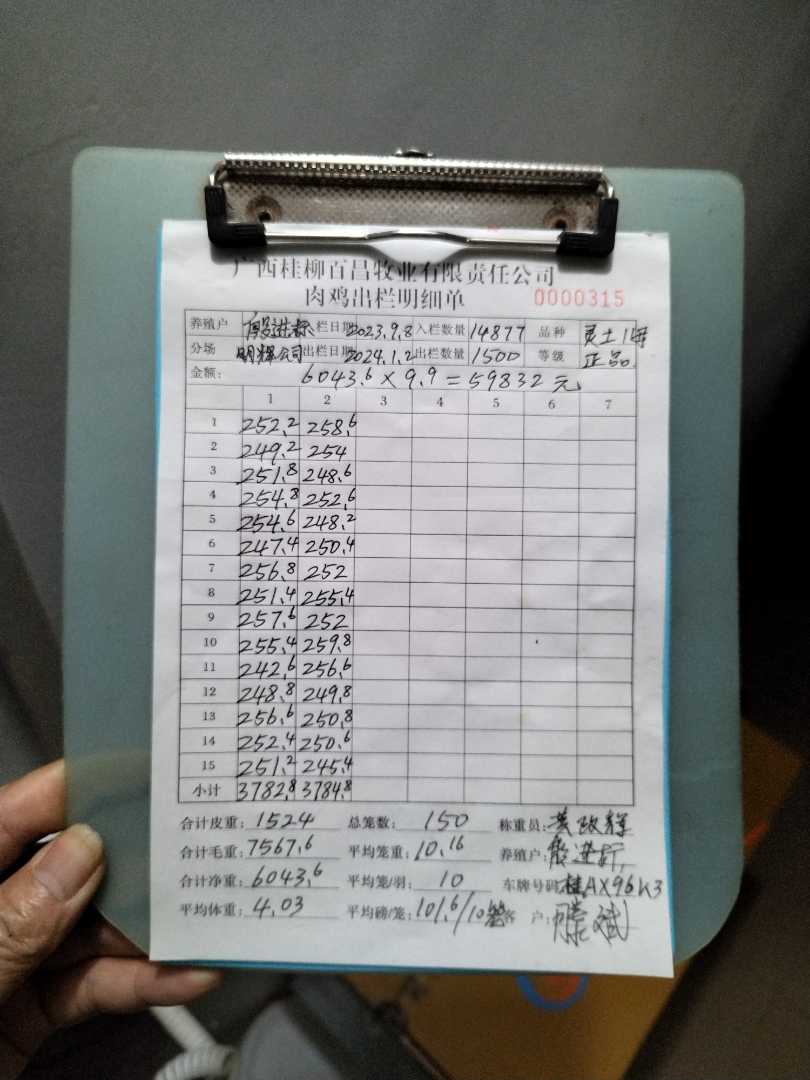 广西桂柳百昌牧业有限责任公司
肉鸡出栏明细单 0000315
养殖户 殷进标 入栏日期 2023.9.8 入栏数量 14877 品种 灵土1号
分场 明辉公司 出栏日期 2024.1.2 出栏数量 1500 等级 正品
金额: 6043.6 × 9.9 = 59832 元
1 2 3 4 5 6 7
1 252.2 258.6
2 249.2 254
3 251.8 248.6
4 254.8 252.6
5 254.6 248.2
6 247.4 250.4
7 256.8 252
8 251.4 255.4
9 257.6 252
10 255.4 259.8
11 242.6 256.6
12 248.8 249.8
13 256.6 250.8
14 252.4 250.6
15 251.2 245.4
小计 3782.8 3784.8
合计皮重: 1524 总笼数: 150 称重员:
合计毛重: 7567.6 平均笼重: 10.16 养殖户:
合计净重: 6043.6 平均笼/羽: 10 车牌号码: 桂AX96K3
平均体重: 4.03 平均磅/笼: 101.6/10笼 客户: 滕斌